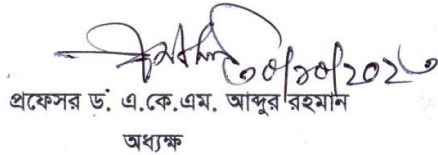 ৩০/১০/২০২৩
প্রফেসর ড. এ.কে.এম. আব্দুর রহমান
অধ্যক্ষ